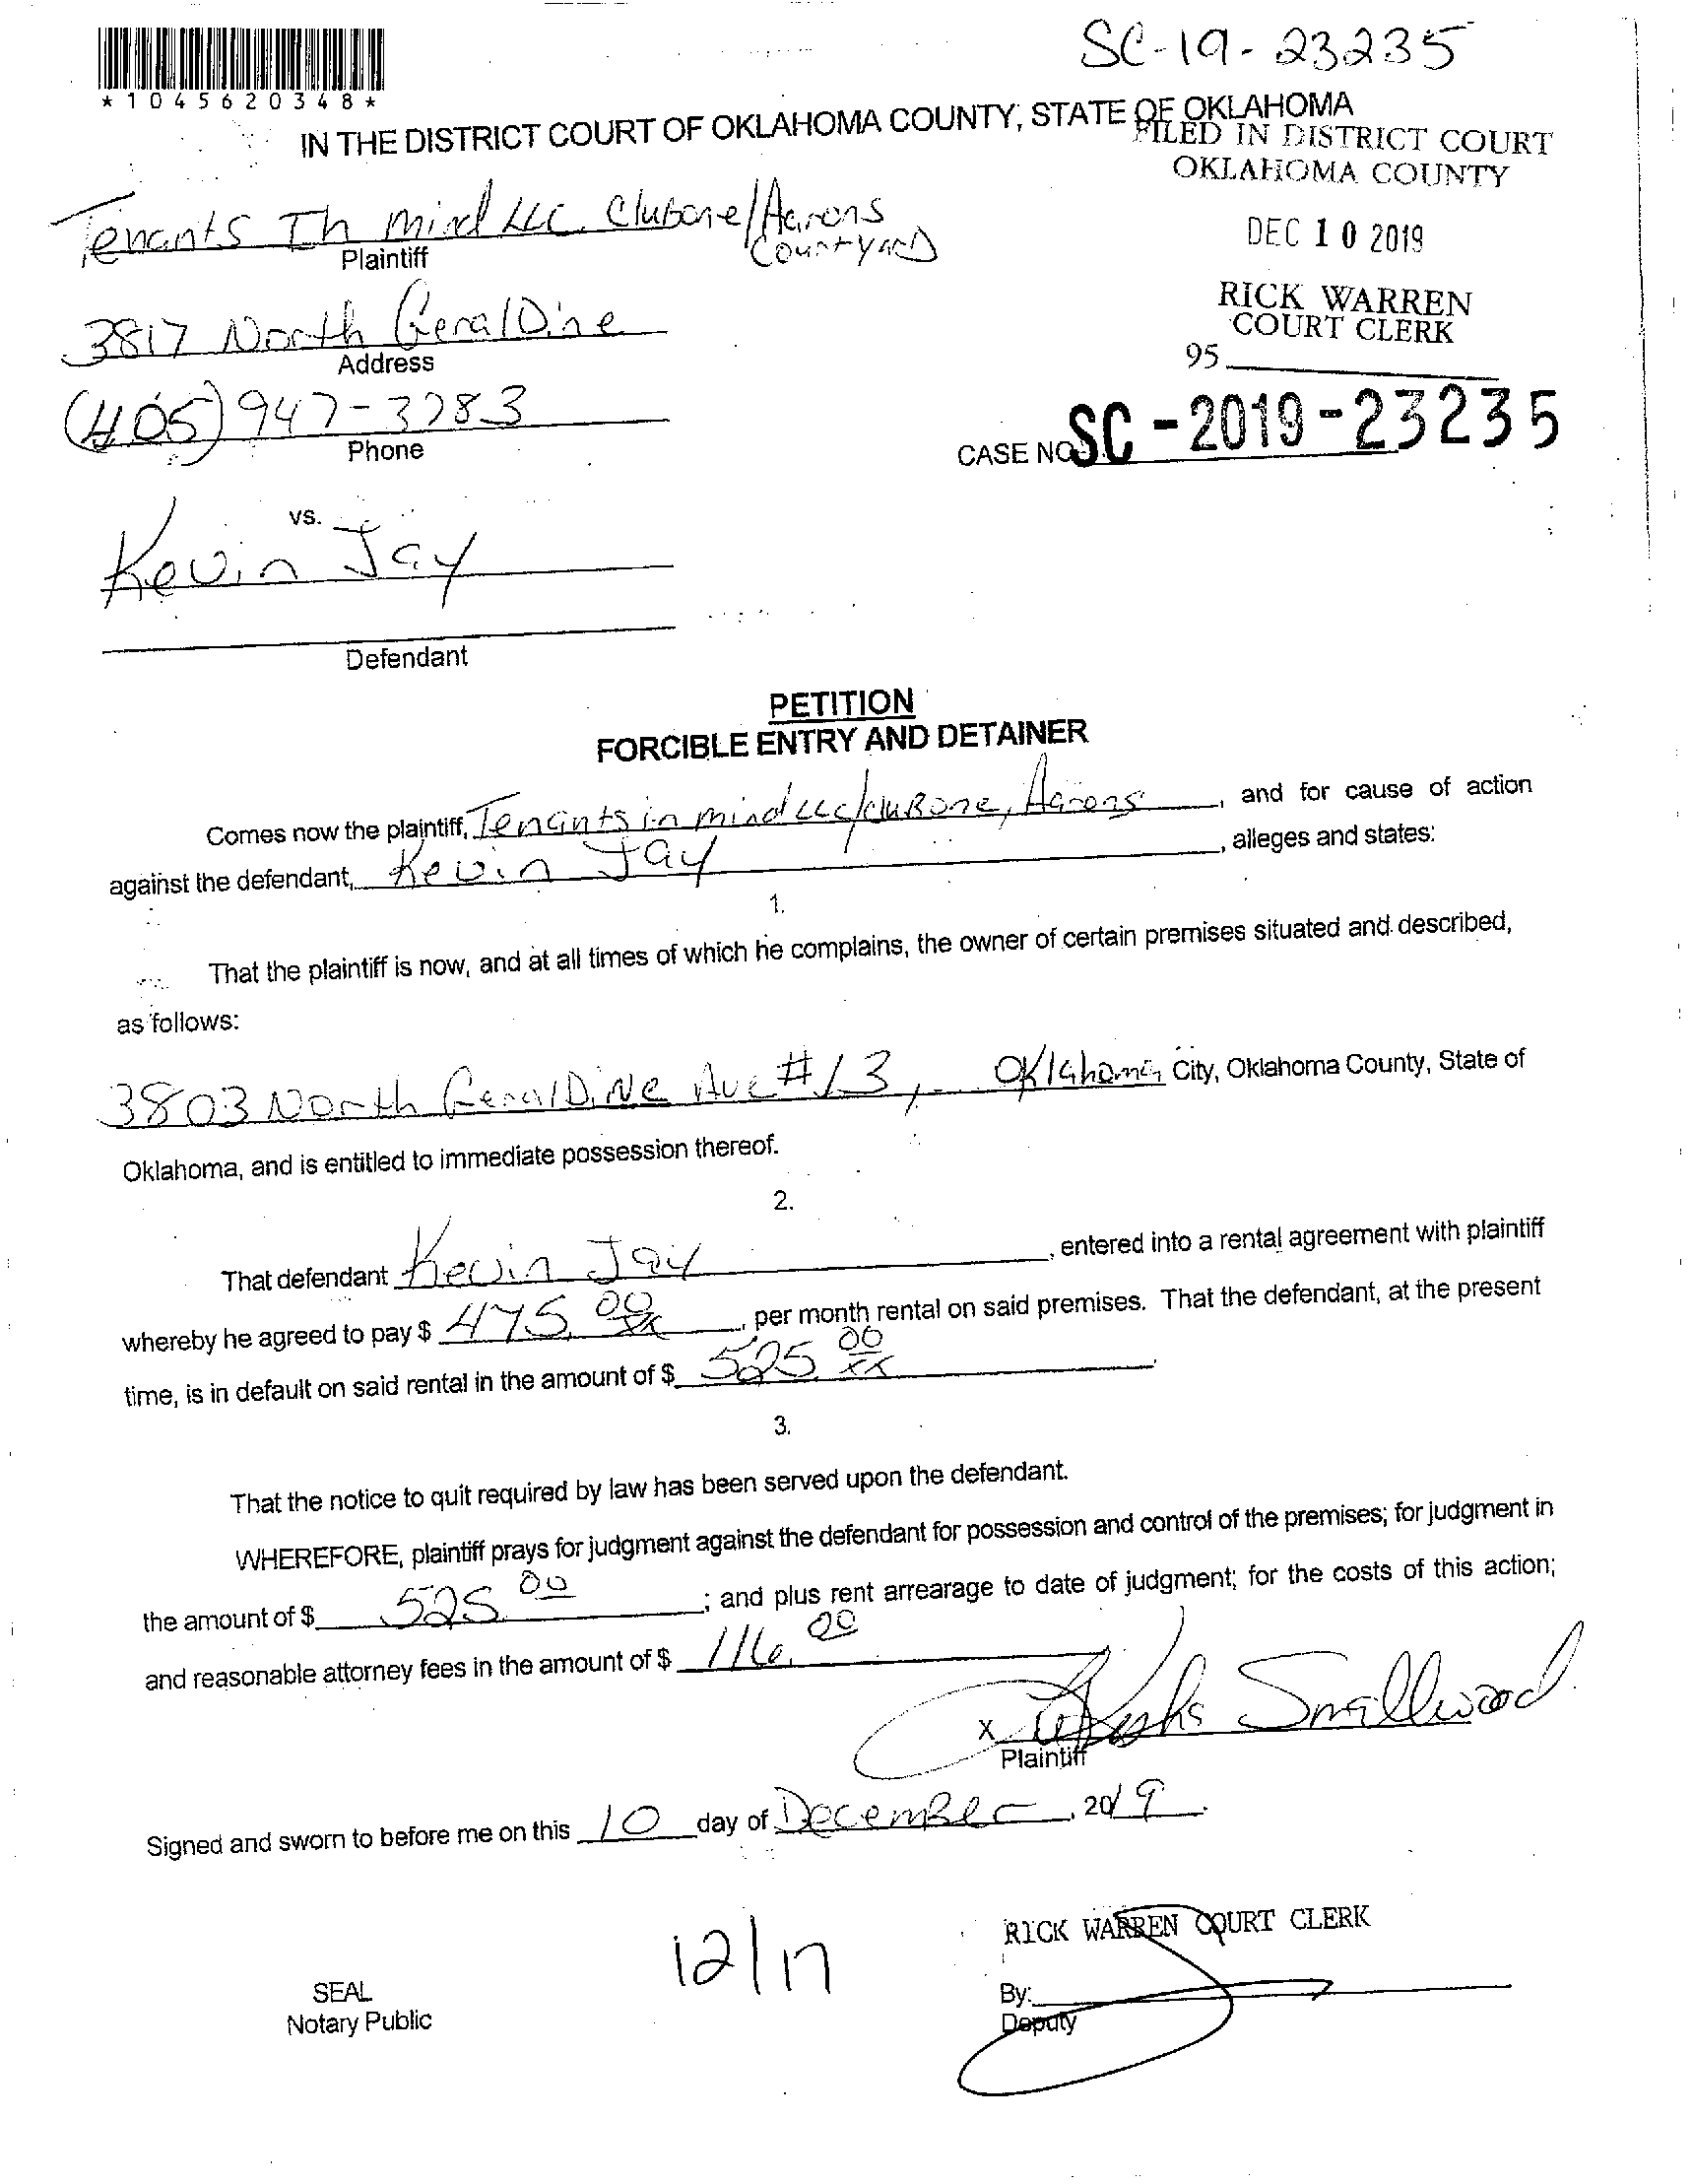 SC-19-23235
*1045620348*
IN THE DISTRICT COURT OF OKLAHOMA COUNTY, STATE OF OKLAHOMA
FILED IN DISTRICT COURT
OKLAHOMA COUNTY
DEC 10 2019
RICK WARREN
COURT CLERK
95
Tenants In mind LLC. Clubone/Aarons
Courtyard
Plaintiff
3817 North GeralDine
Address
(405) 947-3783
Phone
CASE NO. SC-2019-23235
vs.
Kevin Jay
Defendant
PETITION
FORCIBLE ENTRY AND DETAINER
Comes now the plaintiff, Tenants in mind LLC/cluBone, Aarons, and for cause of action
against the defendant, Kevin Jay, alleges and states:
1.
That the plaintiff is now, and at all times of which he complains, the owner of certain premises situated and described,
as follows:
3803 North GeralDiNe Ave #13, Oklahoma City, Oklahoma County, State of
Oklahoma, and is entitled to immediate possession thereof.
2.
That defendant Kevin Jay, entered into a rental agreement with plaintiff
whereby he agreed to pay $ 475.00/xx, per month rental on said premises. That the defendant, at the present
time, is in default on said rental in the amount of $ 525.00/xx.
3.
That the notice to quit required by law has been served upon the defendant.
WHEREFORE, plaintiff prays for judgment against the defendant for possession and control of the premises; for judgment in
the amount of $ 525.00; and plus rent arrearage to date of judgment; for the costs of this action;
and reasonable attorney fees in the amount of $ 116.00
x Smallwood
Plaintiff
Signed and sworn to before me on this 10 day of DecemBer, 2019.
RICK WARREN COURT CLERK
12/17
SEAL
Notary Public
By:
Deputy